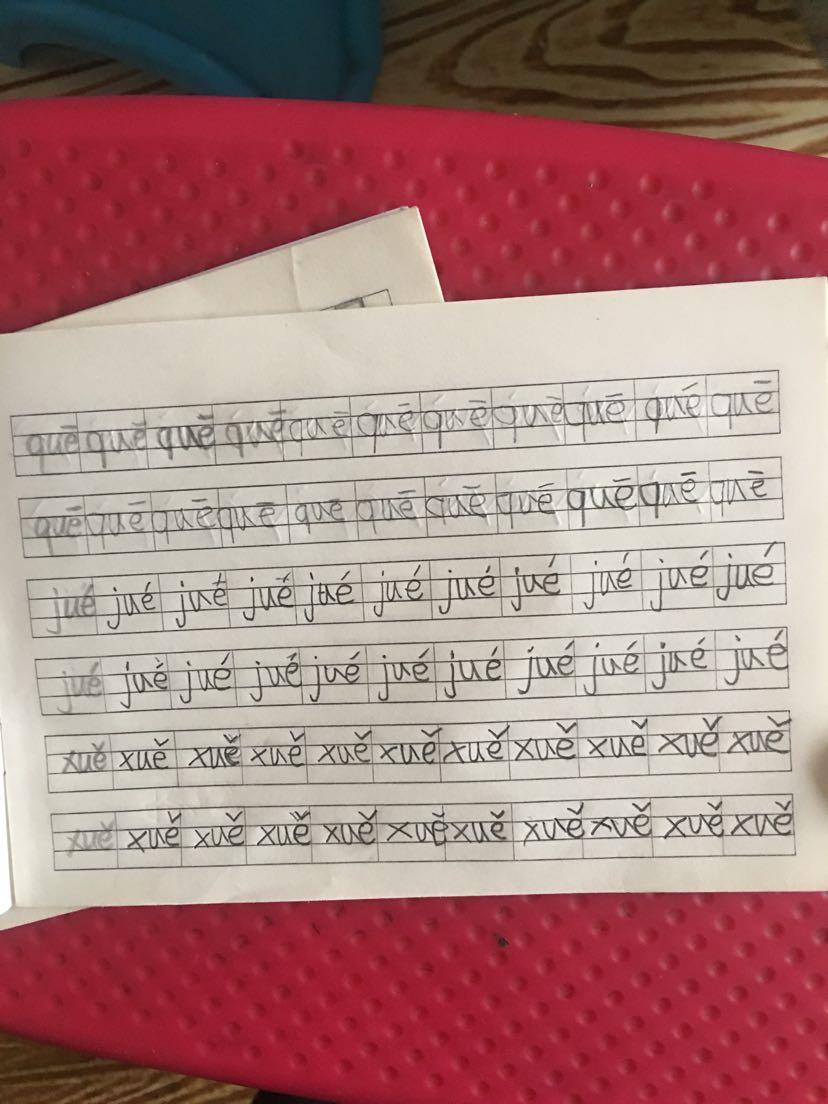 quē quē quē quē quē quē quē quē quē qué quē
quē quē quē quē que quē quē quē quē quē quē
jué jué jué jué jué jué jué jué jué jué jué
jué juě jué jué jué jué jué jué jué jué jué
xuě xuě xuě xuě xuě xuě xuě xuě xuě xuě xuě
xuě xuě xuě xuě xuě xuě xuě xuě xuě xuě xuě